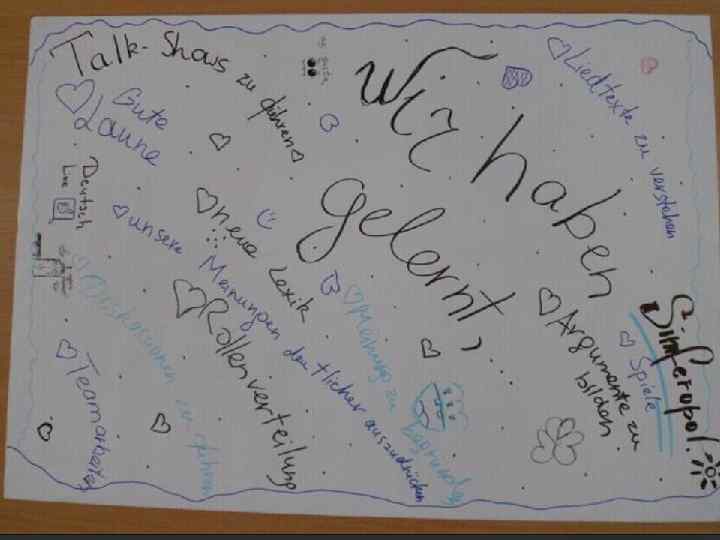 Talk-Shows zu führen
Gute
Laune
Wir haben
gelernt, ...
Liedtexte zu verstehen
Deutsch
Live
neue Lexik
unsere Meinungen deutlicher auszudrücken
Rollenverteilung
Meinung zu begründen
Argumente zu
bilden
Simferopol
Spiele
Diskussionen zu führen
Teamarbeiten